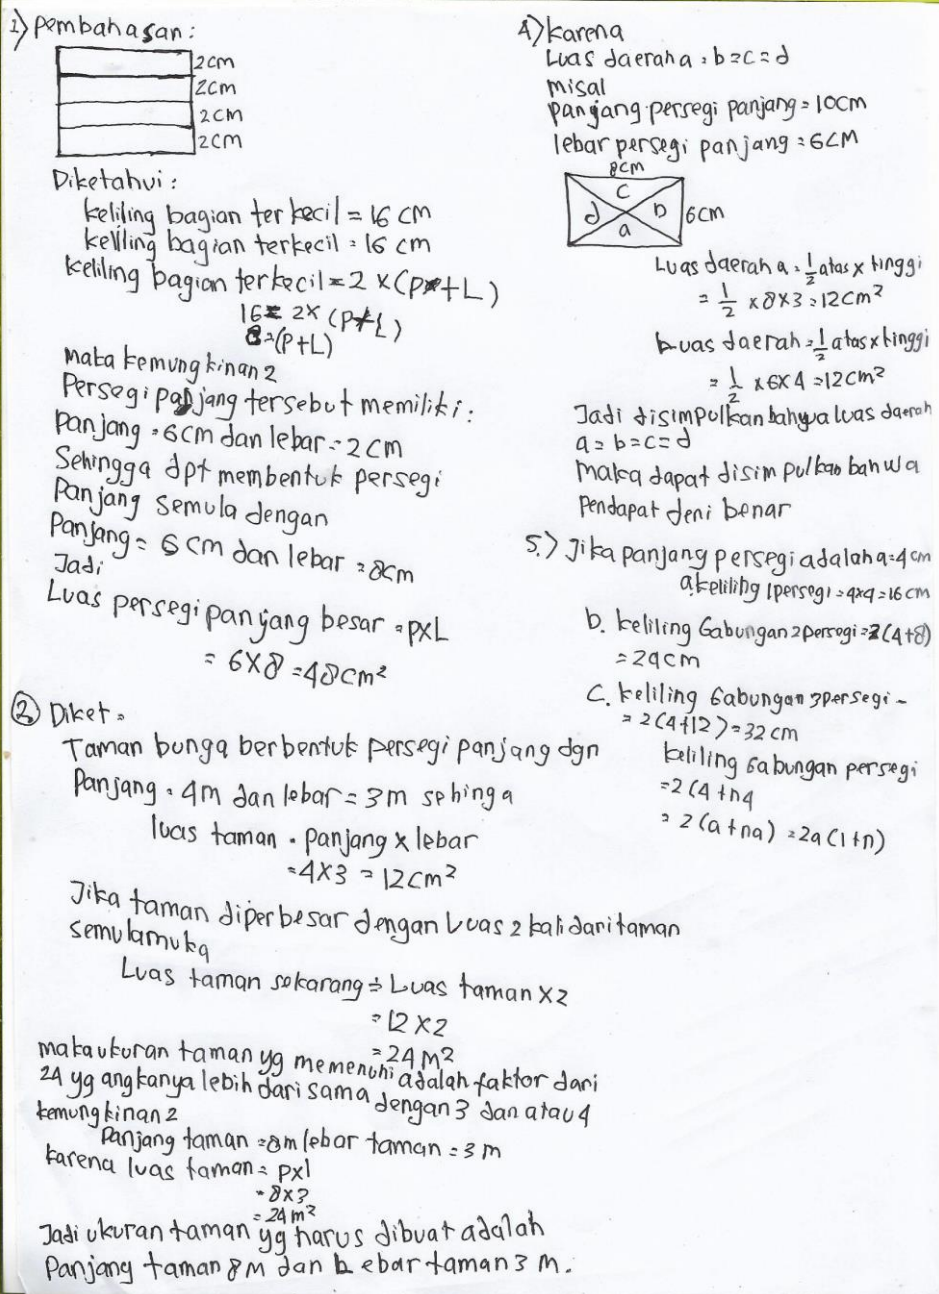 1) Pembahasan:
2cm
2cm
2cm
2cm
Diketahui:
keliling bagian terkecil = 16 cm
keliling bagian terkecil = 16 cm
keliling bagian terkecil = 2 x (P+L)
16 = 2x (P+L)
8 = (P+L)
Maka kemungkinan2
Persegi panjang tersebut memiliki:
Panjang = 6cm dan lebar = 2cm
Sehingga dpt membentuk persegi
Panjang semula dengan
Panjang = 6cm dan lebar = 8cm
Jadi
Luas persegi panjang besar = pxL
= 6x8 = 48cm²
2) Diket =
Taman bunga berbentuk persegi panjang dgn
Panjang = 4m dan lebar = 3m sehinga
luas taman = panjang x lebar
= 4x3 = 12cm²
Jika taman diperbesar dengan Luas 2 kali dari taman
semulamuka
Luas taman sekarang = Luas taman x2
= 12x2
= 24m²
maka ukuran taman yg memenuhi adalah faktor dari
24 yg angkanya lebih dari sama dengan 3 dan atau 4
kemungkinan2
Panjang taman = 8m lebar taman = 3m
karena luas taman = pxl
= 8x3
= 24m²
Jadi ukuran taman yg harus dibuat adalah
Panjang taman 8m dan Lebar taman 3 m.
4) karena
Luas daerah a = b = c = d
misal
panjang persegi panjang = 10cm
lebar persegi panjang = 6cm
8cm
c
d b 6cm
a
Luas daerah a = 1/2 atas x tinggi
= 1/2 x 8x3 = 12cm²
Luas daerah = 1/2 atas x tinggi
= 1/2 x 6x4 = 12cm²
Jadi disimpulkan bahwa luas daerah
a = b = c = d
maka dapat disimpulkan bahwa
Pendapat deni benar
5.) Jika panjang persegi adalah a = 4cm
a keliling 1 persegi = 4x4 = 16cm
b. keliling Gabungan 2 persegi = 2(4+8)
= 24cm
C. keliling Gabungan 3 persegi -
= 2(4+12) = 32cm
keliling Gabungan persegi
= 2(4+n4
= 2(a+na) = 2a(1+n)